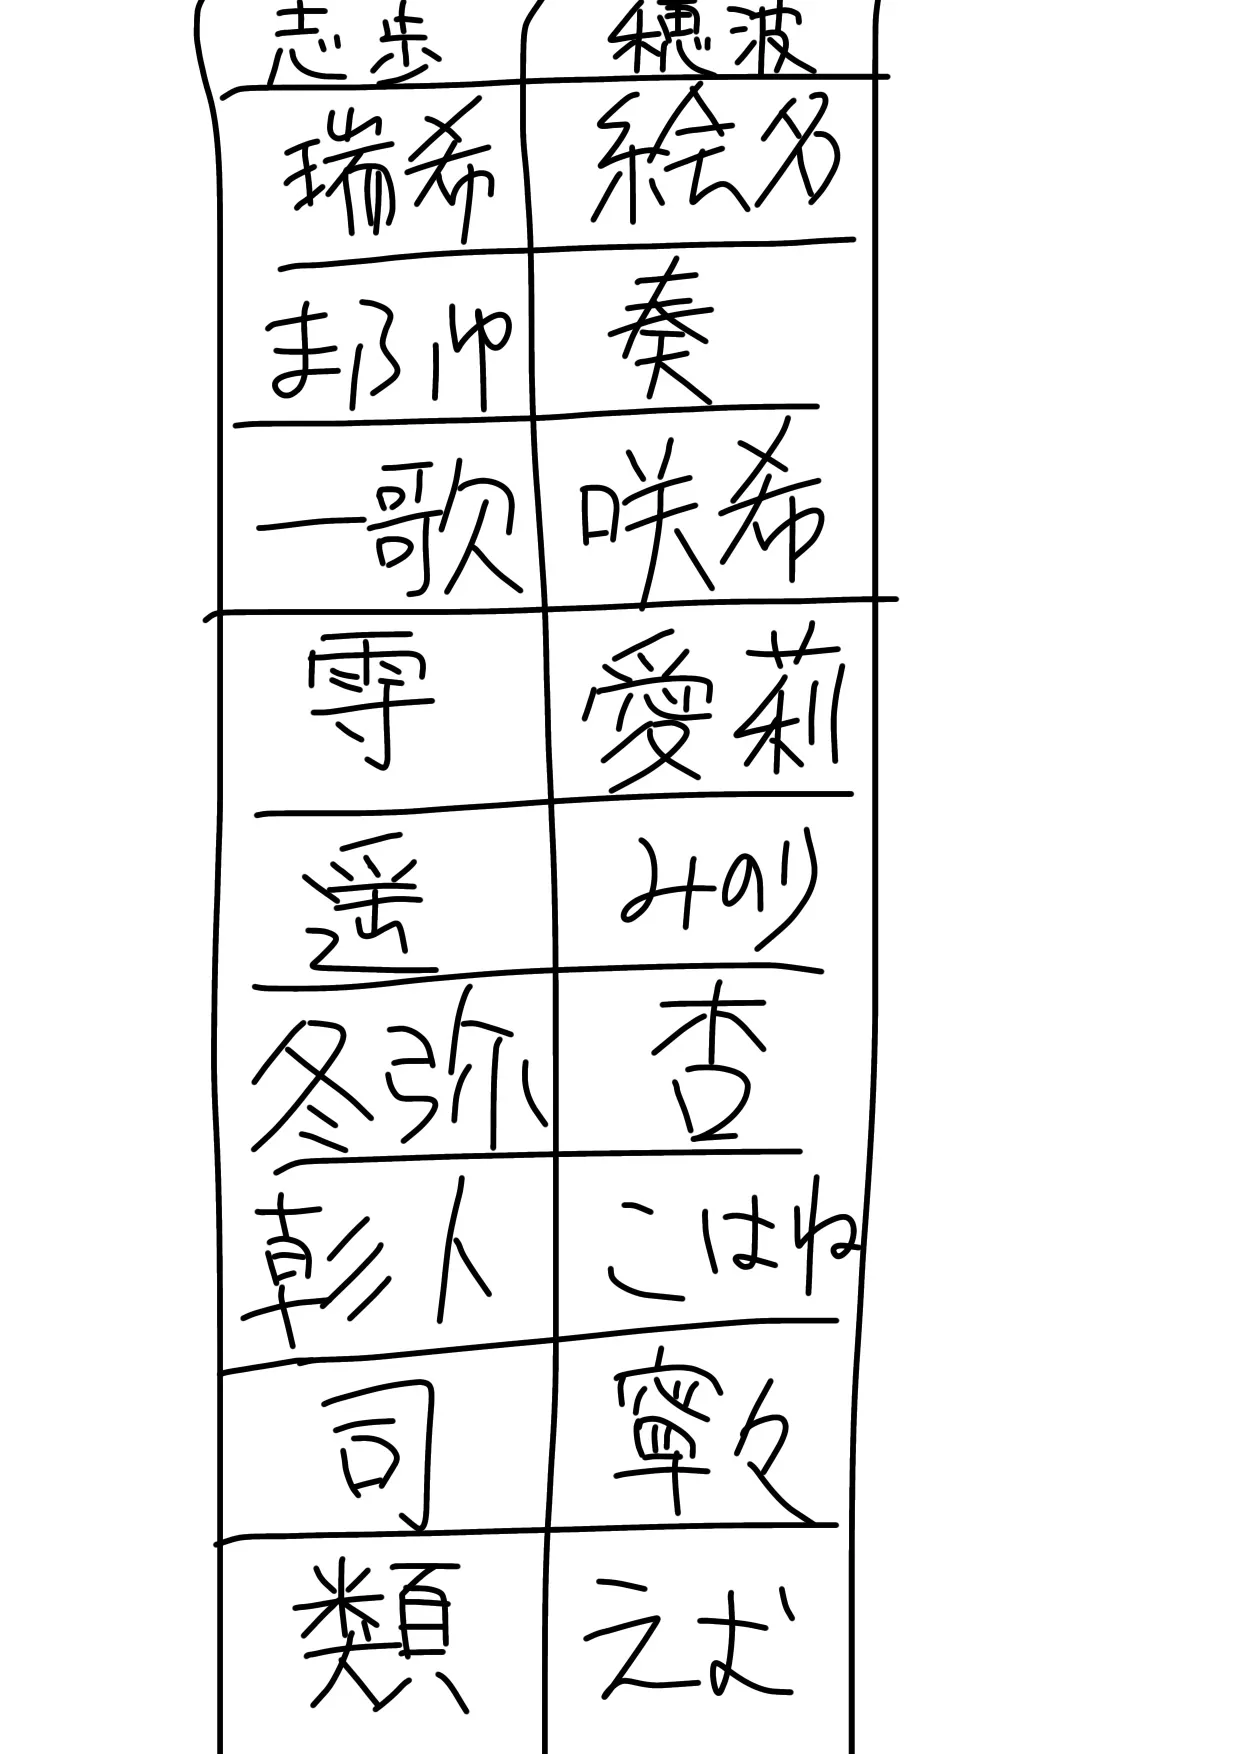 志歩 穂波
瑞希 絵名
まふゆ 奏
一歌 咲希
雫 愛莉
遥 みのり
冬弥 杏
彰人 こはね
司 寧々
類 えむ